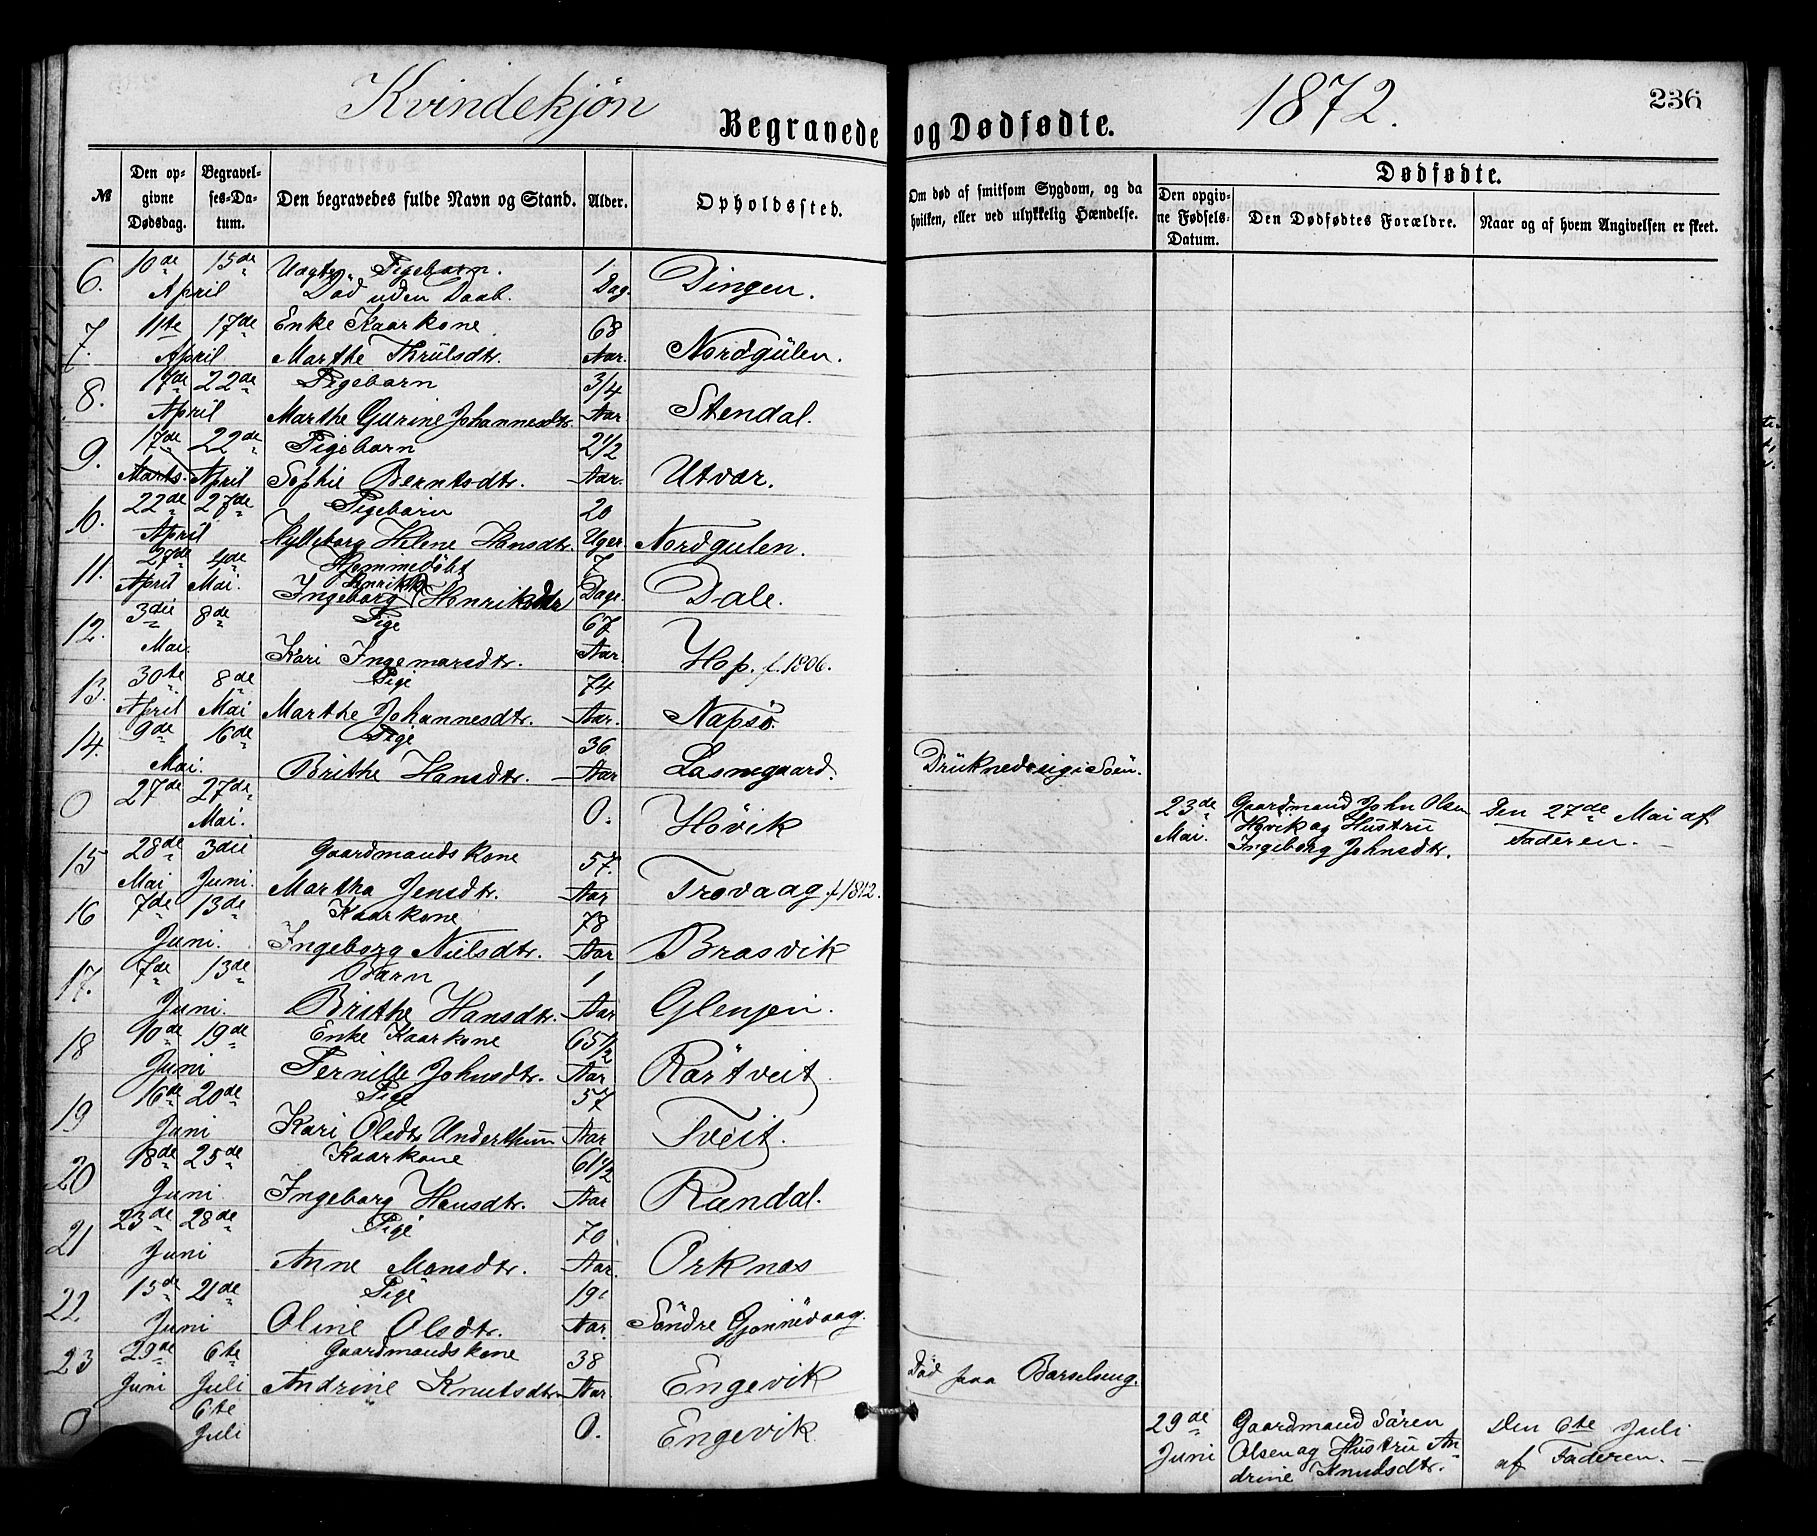 Kvindekjøn
Begravede og Dødfødte.
1872.
236
№
Den opgivne Dødsdag.
Begravelses-Datum.
Den begravedes fulde Navn og Stand.
Alder.
Opholdssted.
Om død af smitsom Sygdom, og da hvilken, eller ved ulykkelig Hændelse.
Dødfødte.
Den opgivne Fødsels-Datum.
Den Dødfødtes Forældre.
Naar og af hvem Angivelsen er skeet.
6. 10de 15de Uægte Pigebarn. 1
April Död uden Daab. Dag. Dingen.
7. 11te 17de Enke Kaarkone. 68
April Marthe Thrulsdtr. Aar. Nordgülen.
8. 17de 22de Pigebarn 3/4
April Marthe Gurine Johannesdtr. Aar Stendal.
9. 17de 22de Pigebarn 2 1/2
Marts. April Sophie Berntsdtr. Aar. Utvær.
22de 27de Pigebarn 20
April Hylleborg Helene Hansdtr. Uger. Nordgulen.
11. 27de 4de Hjemmedöbt 7
April Mai. Ingeborg Henrikke Henriksdtr Dage. Dale.
12. 3die 8de Pige 67
Mai. Kari Ingemarsdtr. Aar. Hop. f. 1806.
13. 30te 8de Pige 74
April Mai Marthe Johannesdtr. Aar. Napsö.
14. 9de 16de Pige 36
Mai. Brithe Hansdtr. Aar Druknede sig i Söen.
0 27de 27de Mai. 0. Hövik
23de Mai. Gaardmand John Olsen Hövik og Hustru Ingeborg Johnsdtr. Den 27de Mai af Faderen.
15 28de 3die Gaardmandskone 57.
Mai Juni. Martha Jensdtr. Aar Trovaag. f 1812.
16 7de 13de Kaarkone 78
Juni. Ingeborg Nielsdtr. Aar Brasvik
17. 7de 13de Barn 1
Juni. Brithe Hansdtr. Aar Glenjen.
18 10de 19de Enke Kaarkone 65 1/2
Juni Pernille Johnsdtr. Aar Rörtveit
19 16de 20de Pige 57
Juni Kari Olsdtr Underthun Aar Tveit.
20 18de 25de Kaarkone 61 1/2
Juni Ingeborg Hansdtr. Aar Rændal.
21 23de 28de Pige 70
Juni Anne Monsdtr. Aar. Orknæs
22 15de 21de Pige 19
Juni Oline Olsdtr. Aar. Söndre Gjonnevaag.
23 29de 6te Gaardmandskone 38
Juni Juli Andrine Knutsdtr Aar Engevik Död paa Barselseng.
0 6te Juli 0. Engevik
29de Juni Gaardmand Sören Olsen og Hustru Andrine Knudsdtr. Den 6te Juli af Faderen.